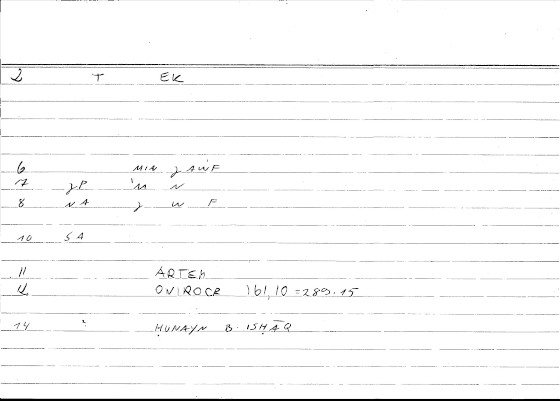 2 T EK
6 MIN J AWF
7 JP 'M N
8 NA J W F
10 SA
11 ARTEM
12 ONIROCR 161,10 = 289.15
14 ḤUNAYN B. ISḤĀQ